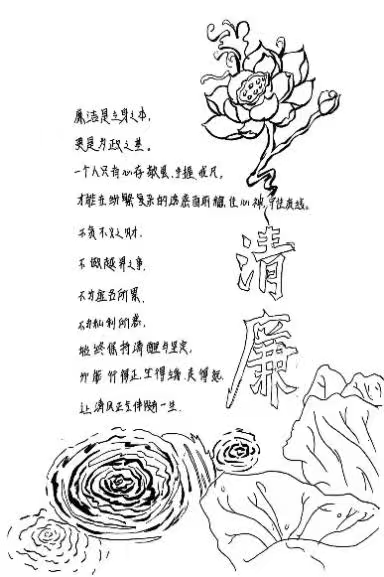 廉洁是立身之本,
更是为政之基。
一个人只有心存敬畏、手握戒尺,
才能在纷繁复杂的诱惑面前稳住心神,守住底线。
不贪不义之财,
不做越界之事,
不为虚名所累,
不为私利所惑,
始终保持清醒与坚定,
才能行得正、坐得端、走得远,
让清风正气伴随一生.
清廉